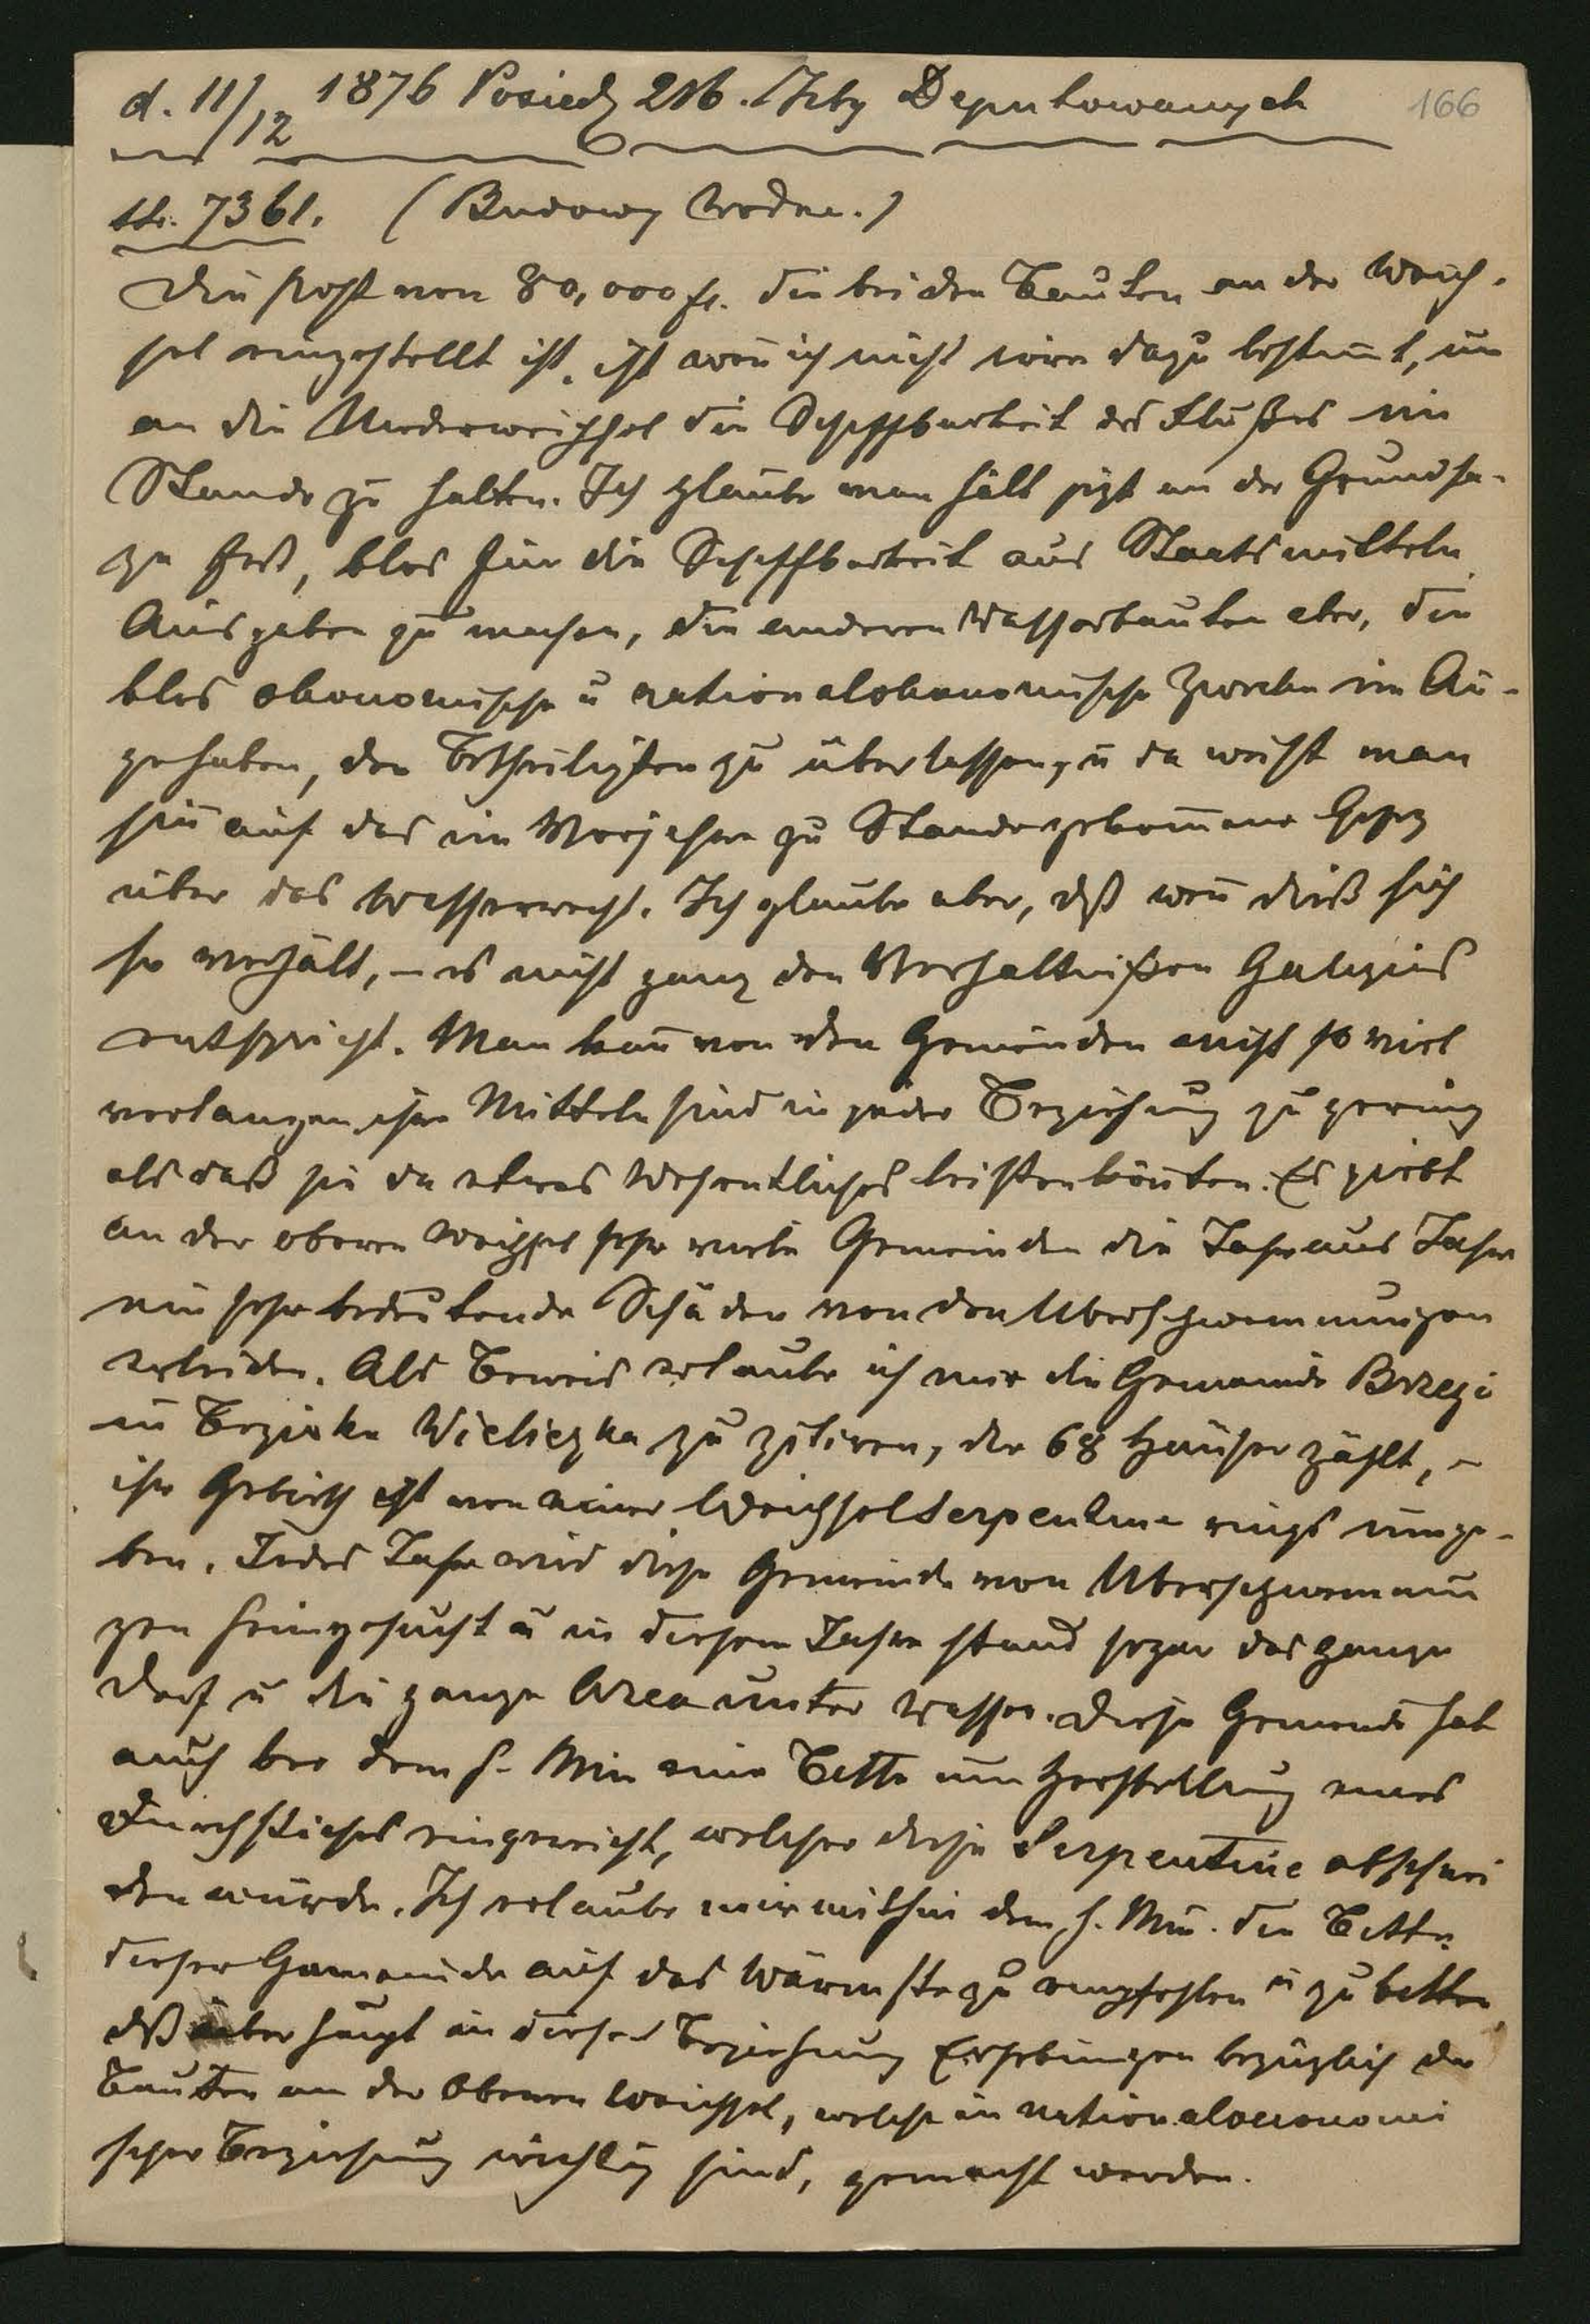 d. 11/12 1876 Posiedz 216. Izby Deputowanych 166
str. 7361. (Budowy wodne.)
Die Post von 80,000 fl. die bei den Bauten an der Weich-
sel eingestellt ist, ist wen̄ ich nicht irre dazu bestim̄t, um
an die Niederweichsel die Schiffbarkeit des Flußes im
Stande zu halten. Ich glaube man hält jetzt an der Grundsa-
ze fest, blos für die Schiffbarkeit aus Staatsmitteln
Ausgaben zu machen, die anderen Wasserbauten aber, die
blos okonomische u nationalokonomische Zwecke im Au-
ge haben, den Betheiligten zu überlassen, u da weist man
hin auf das im Vorjahre zu Stande gekom̄ene Gesez
über das Wasserrecht. Ich glaube aber, dß wen̄ dieß sich
so verhält, – es nicht ganz den Verhaltnißen Galiziens
entspricht. Man kan̄ von den Gemeinden nicht so viel
verlangen, ihre Mitteln sind in jeder Beziehung zu gering
als daß sie da etwas Wesentliches leisten kön̄ten. Es giebt
an der oberen Weichsel sehr viele Gemeinden die Jahr aus Jahr
ein sehr bedeutende Schäden von den Uberschwemmungen
erleiden. Als Beweis erlaube ich mir die Gemeinde Brzegi
im Bezirke Wieliczka zu zitiren, die 68 Häuser zählt, –
ihr Gebieth ist von einer Weichselserpentine rings umge-
ben. Jedes Jahr wird diese Gemeinde von Uberschwemmun
gen heimgesucht u in diesem Jahre stand sogar das ganze
Dorf u die ganze Area unter Wasser. Diese Gemeinde hat
auch bei dem h. Min eine Bitte um Herstellung eines
Durchstiches eingereicht, welcher diese Serpentine abschnei
den würde. Ich erlaube mir mithin dem h. Min. die Bitte
dieser Gemeinde auf das Wärmste zu empfehlen u zu bitten,
dß überhaupt in dieser Beziehung Erhebungen bezüglich der
Bauten an der Oberen Weichsel, welche in nationaloeconomi
scher Beziehung wichtig sind, gemacht werden.